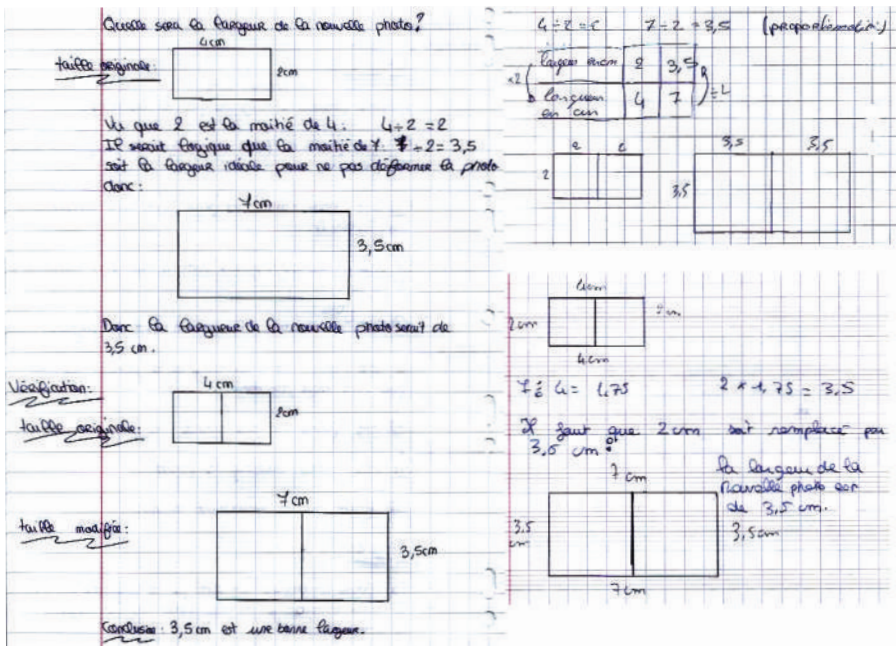 Quelle sera la largeur de la nouvelle photo?
taille originale:
4cm
2cm
Vu que 2 est la moitié de 4: 4÷2=2
Il serait logique que la moitié de 7: 7÷2=3,5
soit la largeur idéale pour ne pas déformer la photo
donc:
7cm
3,5cm
Donc la largueur de la nouvelle photo serait de
3,5 cm.
Vérification:
4cm
taille originale:
2cm
7cm
taille modifiée:
3,5cm
Conclusion: 3,5cm est une bonne largeur.
7÷2=3,5
largeur en cm 2 3,5
×2
longueur en cm 4 7
÷2
3,5 3,5
2
3,5
4cm
2cm
4cm
7÷4= 1,75 2×1,75=3,5
Il faut que 2cm soit remplacé par
3.5 cm
7 cm
la largeur de la
nouvelle photo est
de 3,5 cm.
3,5
cm
3,5cm
7cm